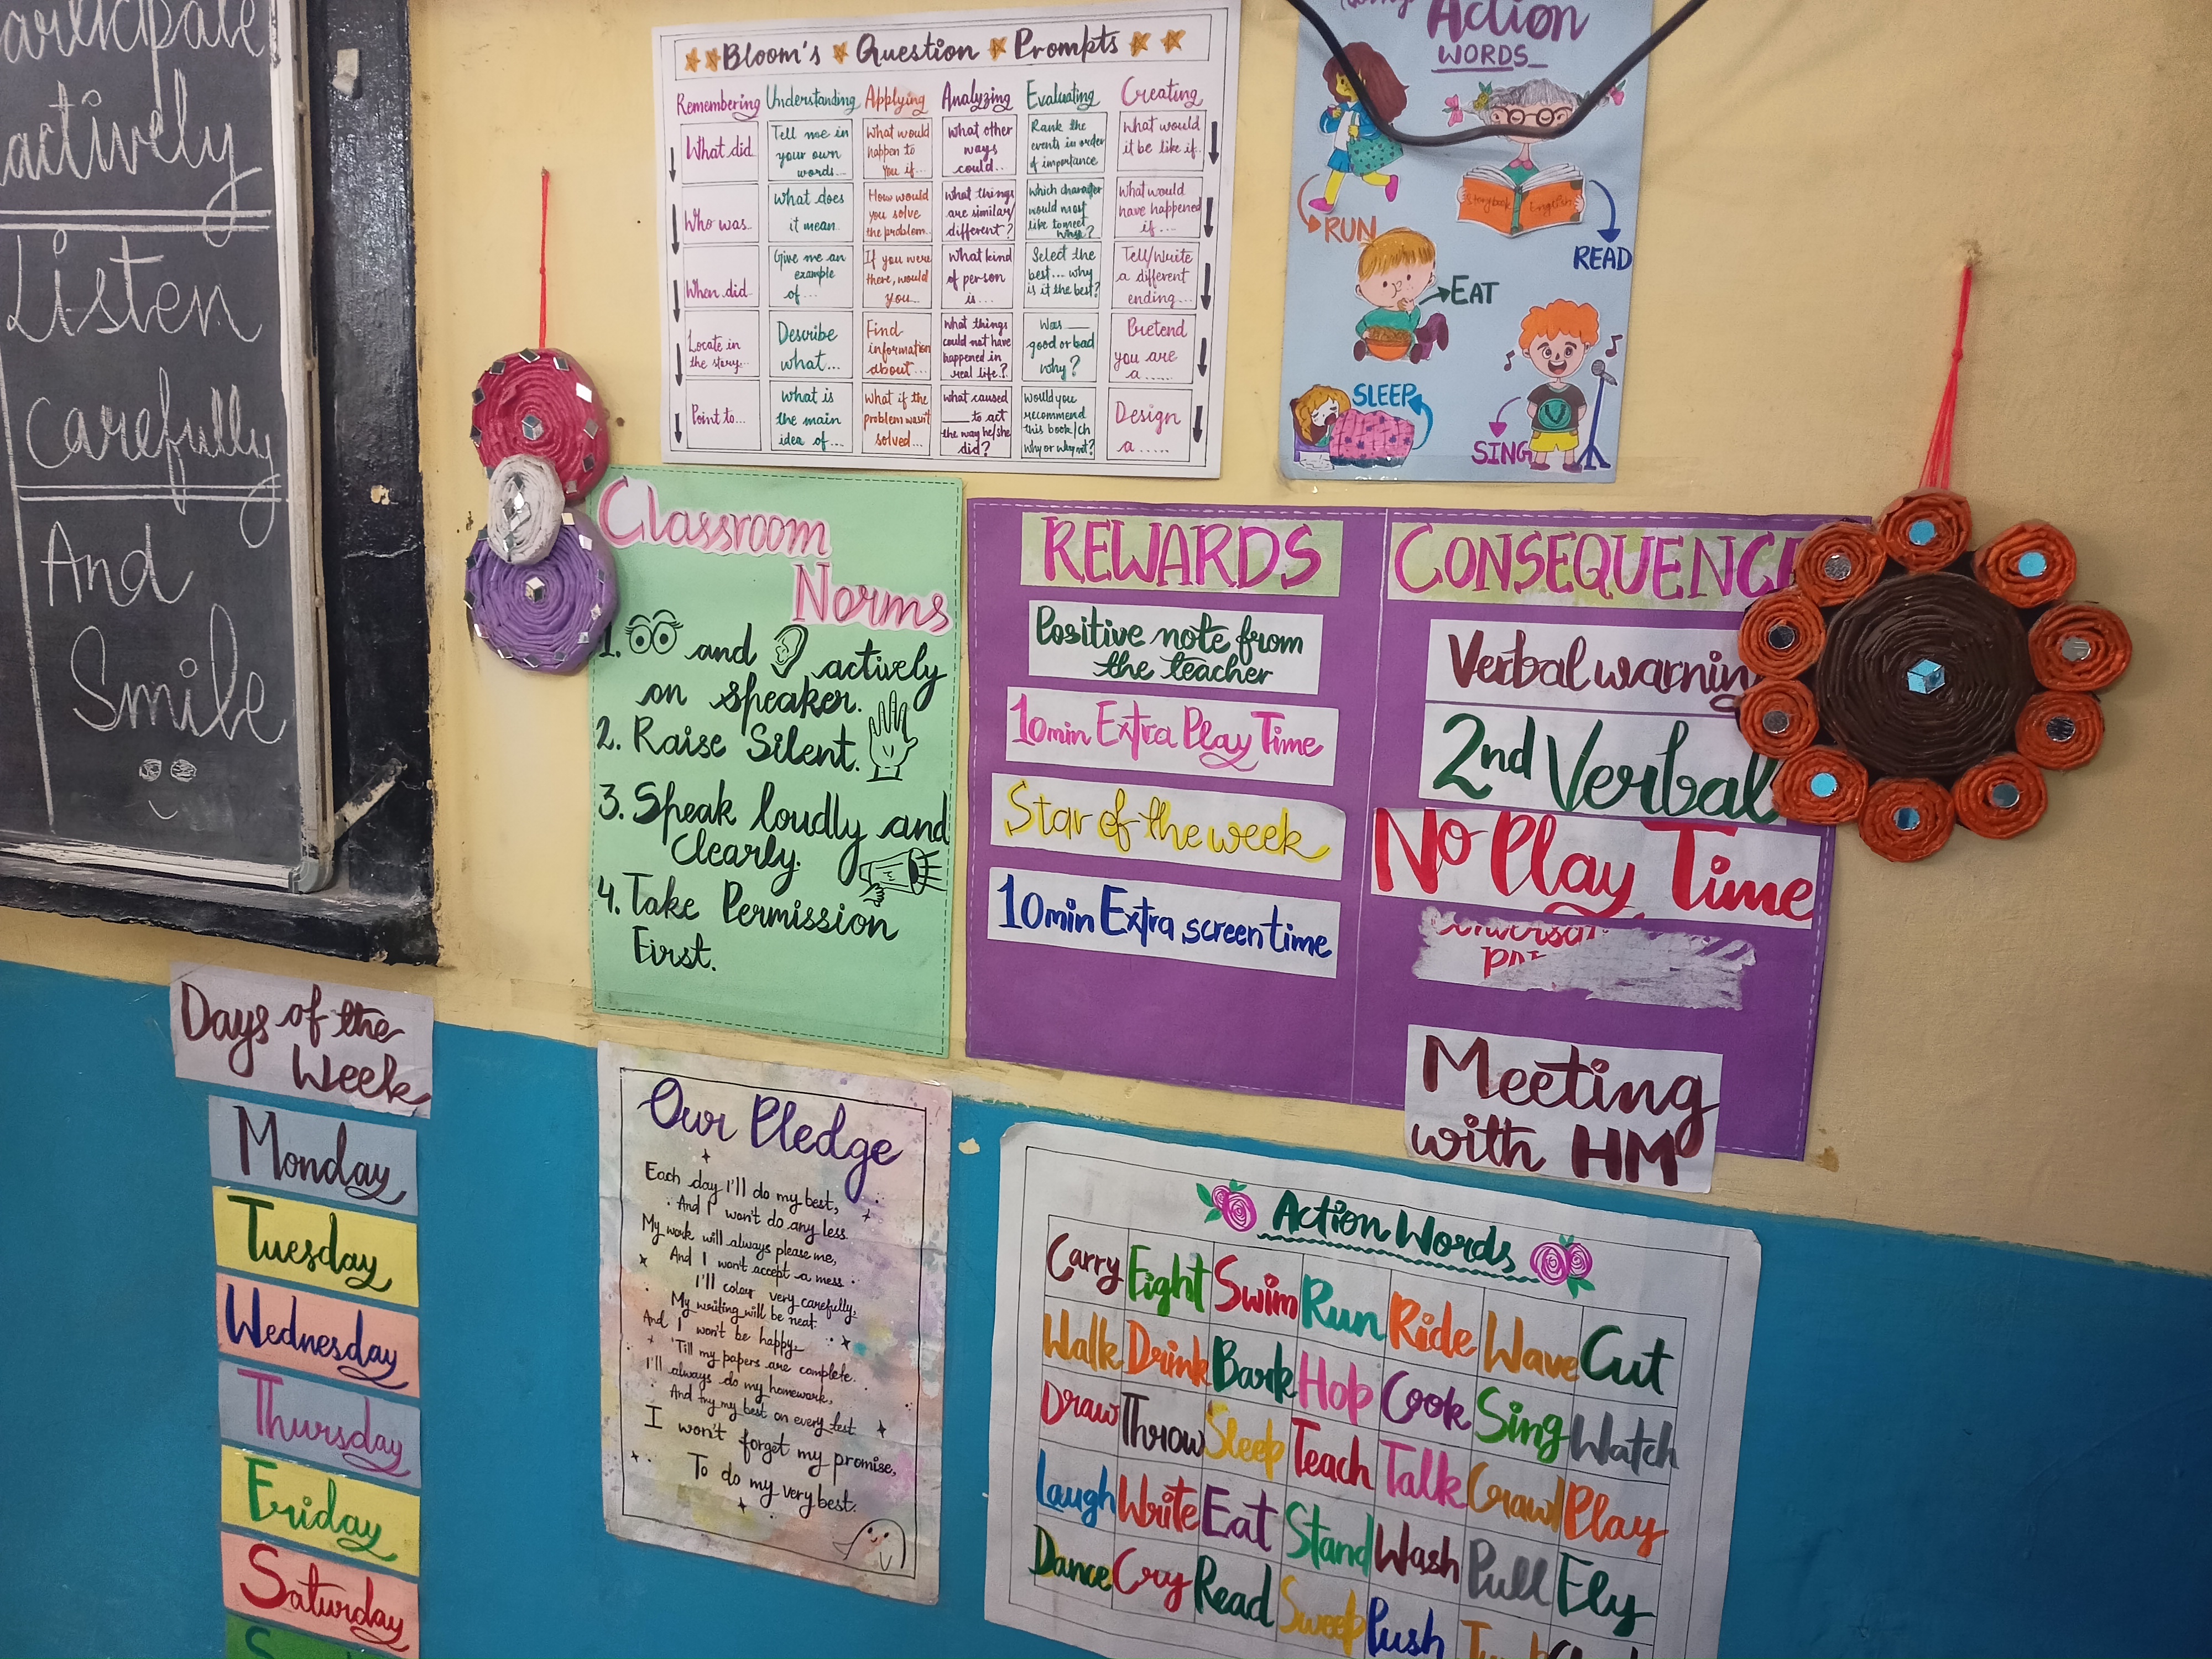 articipate
actively
Listen
Carefully
And
Smile
Bloom's Question Prompts
Remembering Understanding Applying Analyzing Evaluating Creating
What did
Tell me in
your own
words...
What would
happen to
you if...
what other
ways
could..
Rank the
events in order
of importance
what would
it be like if..
Who was..
What does
it mean..
How would
you solve
the problem..
what things
are similar/
different?
which character
would most
like to meet
What would
have happened
if...
When did..
Give me an
example
of...
If you were
there, would
you...
What kind
of person
is...
Select the
best... why
is it the best?
Tell/Write
a different
ending...
Locate in
the story...
Describe
what...
Find
information
about...
what things
could not have
happened in
real life?
Was ___
good or bad
why?
Pretend
you are
a.....
Point to...
what is
the main
idea of...
what if the
problem wasn't
solved...
what caused
___ to act
the way he/she
did?
would you
recommend
this book/ch
why or why not?
Design
a.....
Action
WORDS
storybook English
RUN
READ
EAT
SLEEP
SING
Classroom
Norms
1. and actively
on speaker.
2. Raise Silent.
3. Speak loudly and
Clearly.
4. Take Permission
First.
REWARDS
Positive note from
the teacher
10min Extra Play Time
Star of the week
10min Extra screen time
CONSEQUENCE
Verbal warning
2nd Verbal
No Play Time
Meeting
with HM
Days of the
Week
Monday
Tuesday
Wednesday
Thursday
Friday
Saturday
Our Pledge
Each day I'll do my best,
And I won't do any less
My work will always please me,
And I won't accept a mess.
I'll colour very carefully,
My writing will be neat
And I won't be happy
'Till my papers are complete.
I'll always do my homework,
And try my best on every test
I won't forget my promise,
To do my very best.
Action Words
Carry Fight Swim Run Ride Wave Cut
Walk Drink Bark Hop Cook Sing Watch
Draw Throw Sleep Teach Talk Crawl Play
Laugh Write Eat Stand Wash Pull Fly
Dance Cry Read Sweep Push